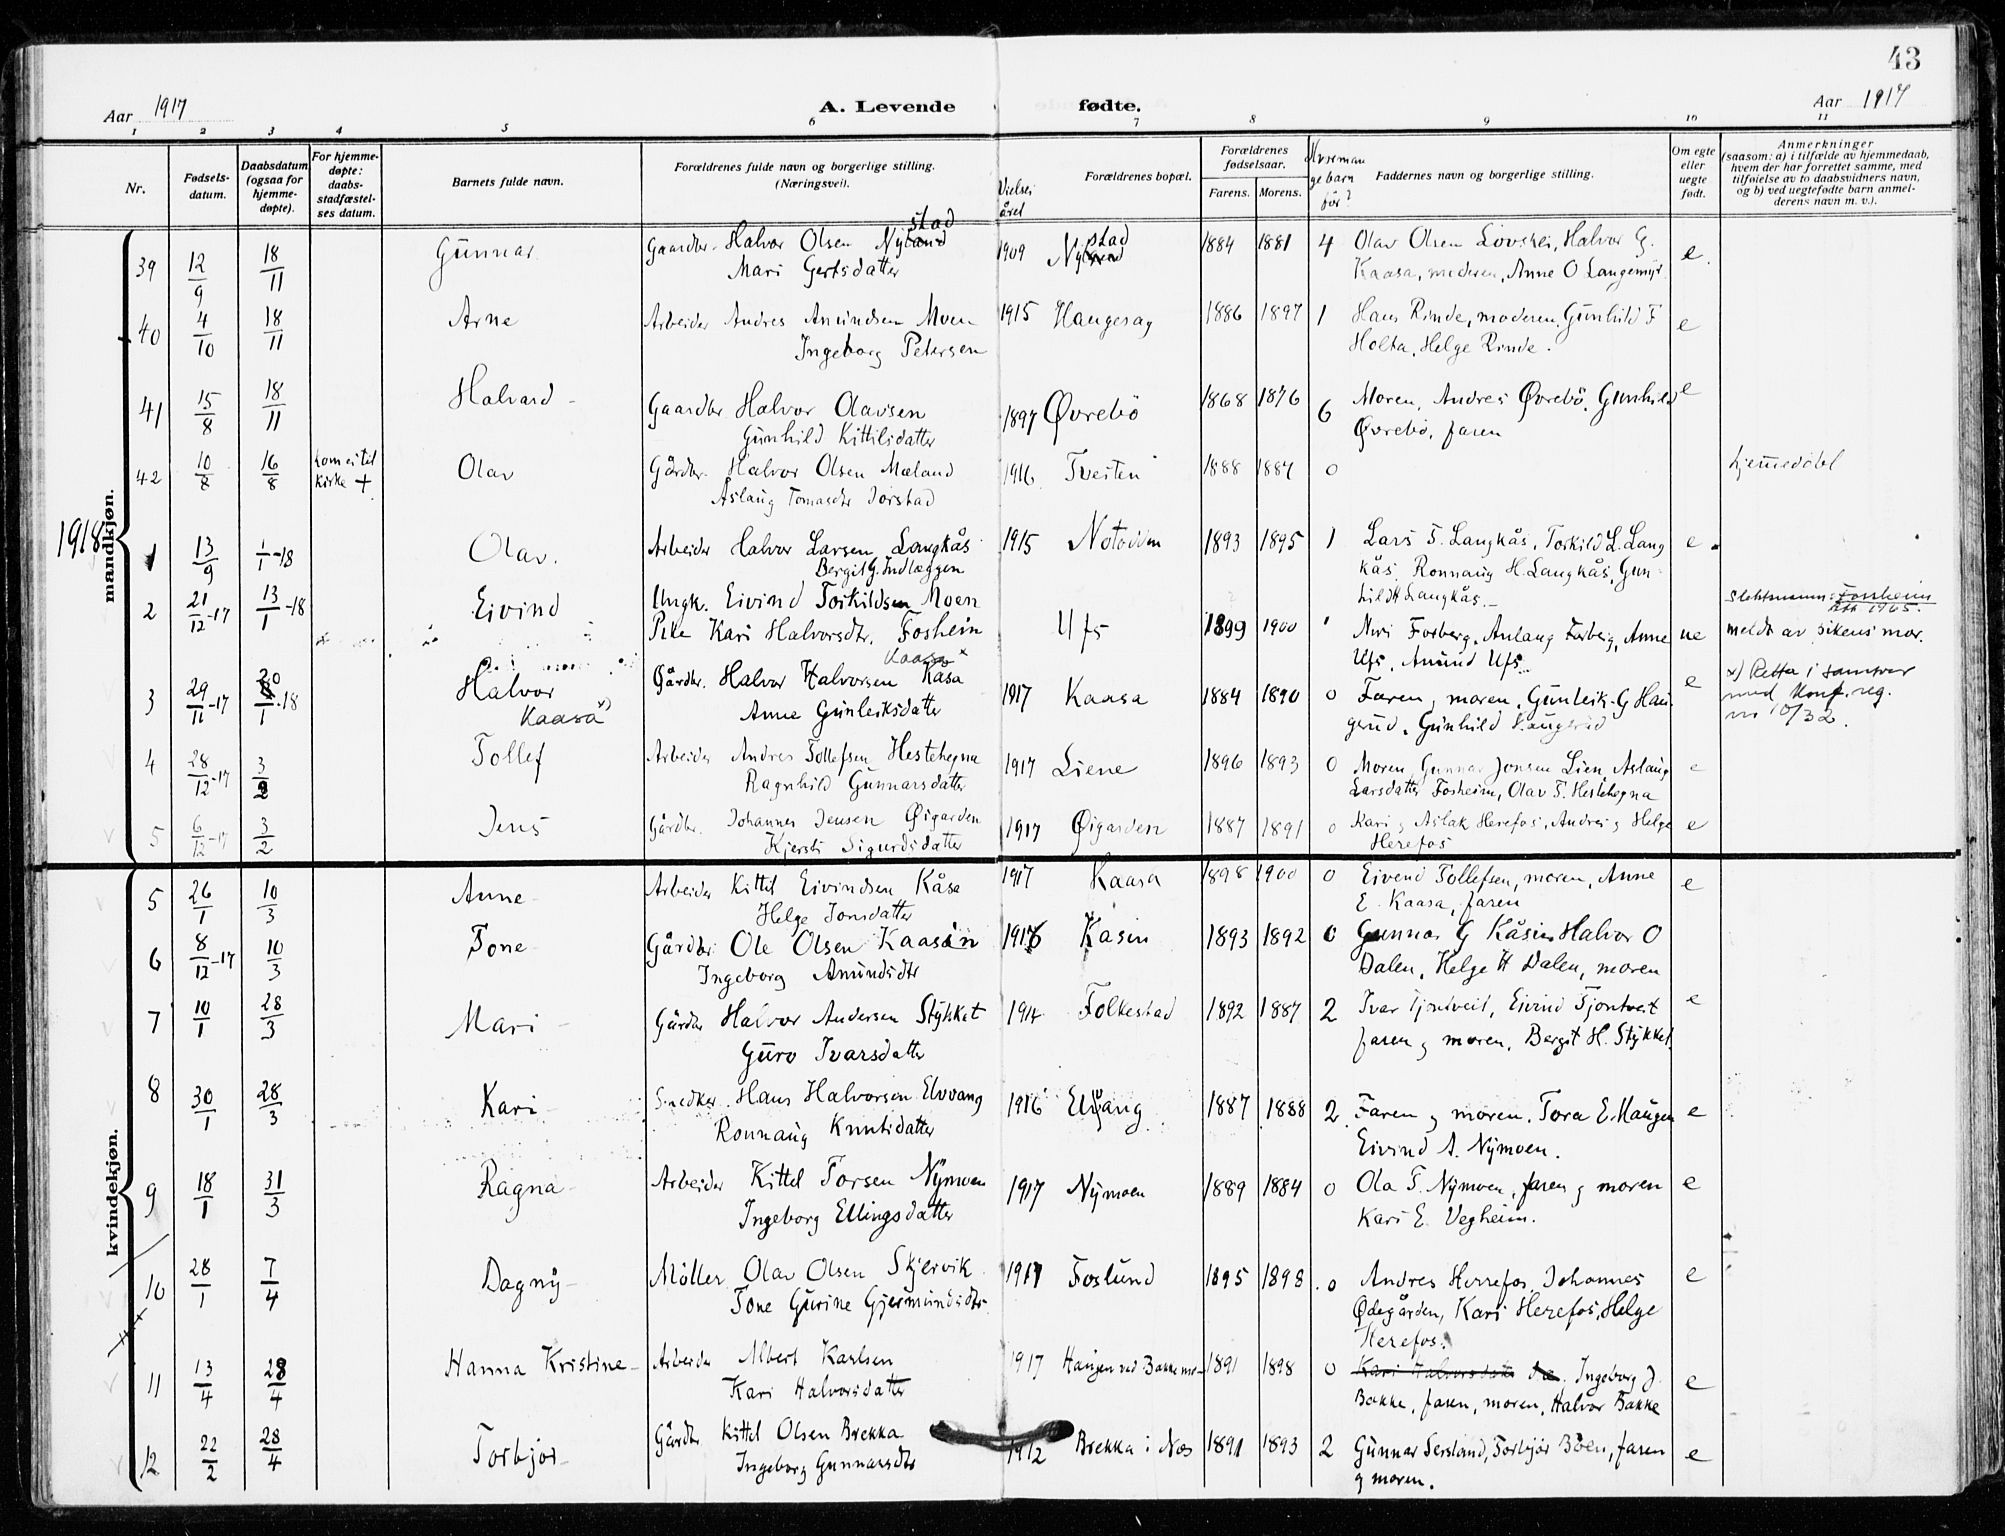 43
Aar 1917 A. Levende fødte. Aar 1917
1 2 3 4 5 6 7 8 9 10 11
Nr.
Fødsels-
datum.
Daabsdatum
(ogsaa for
hjemme-
døpte).
For hjemme-
døpte:
daabs-
stadfæstel-
ses datum.
Barnets fulde navn.
Forældrenes fulde navn og borgerlige stilling.
(Næringsvei).
Vielses
året
Forældrenes bopæl.
Forældrenes
fødselsaar.
Farens. Morens.
Hvor man
ge barn
før?
Faddernes navn og borgerlige stilling.
Om egte
eller
uegte
født.
Anmerkninger
(saasom: a) i tilfælde av hjemmedaab,
hvem der har forrettet samme, med
tilføielse av to daabsvidners navn,
og b) ved uegtefødte barn anmel-
derens navn m. v.).
mandkjøn.
39 12/9 18/11 Gunnar Gaardbr. Halvor Olsen Nystad 1909 Nystad 1884 1881 4 Olav Olsen Lovshei, Halvor G. e.
Mari Gertsdatter Kaasa, moderen, Anne O Langemyr
40 4/10 18/11 Arne Arbeider Andres Amundsen Moen 1915 Haugesag 1886 1897 1 Hans Rinde, moderen, Gunhild F e
Ingeborg Petersen Holta, Helge Rinde.
41 15/8 18/11 Halvard Gaardbr Halvor Olavsen 1897 Øvrebö 1868 1876 6 Moren, Andres Øvrebö, Gunhild e
Gunhild Kittilsdatter Øvrebö, faren
42 10/8 16/8 kom ei til kirke + Olav Gårdbr. Halvor Olsen Mæland 1916 Tveiten 1888 1887 0 hjemedöbt
Åslaug Tomasdtr Jorstad
1918
1 13/9 1/1-18 Olav. Arbeider Halvor Larsen Langkås 1915 Notodden 1893 1895 1 Lars T. Langkås, Torkild L. Lang e
Bergit G. Indlæggen kås, Ronnaug H. Langkås, Gun-
hild H Langkås.
2 21/12-17 13/1-18 Eivind Ungk. Eivind Torkildsen Moen Ufs 1899 1900 1 Nuri Forberg, Aslaug Forberg, Anne ue
Pike Kari Halvorsdtr. Foshein Ufs, Amund Ufs
Slektsnamn: Fossheim
meldt av pikens mor.
3 29/11-17 20/1-18 Halvor Gårdbr. Halvor Halvorsen Kåsa Kaasa x 1917 Kaasa 1884 1890 0 Faren, moren, Gunleik G Hau- e
Kaasa x) Anne Gunleiksdatter gerud, Gunhild Haugerud
x) Retta i samsvar
med Konf. reg.
nr 10/32.
4 28/12-17 3/2 Tollef Arbeider Andres Tollefsen Hestehegna 1917 Liene 1896 1893 0 Moren, Gunnar Jonsen Lien, Aslaug e
Ragnhild Gunnarsdatter Larsdatter Fosheim, Olav T. Hestehegna
5 6/12-17 3/2 Jens Gårdbr. Johannes Jensen Øigarden 1917 Øigarden 1887 1891 0 Kari g Aslak Herefos, Andres g Helge e
Kjersti Sigurdsdatter Herefos
kvindekjøn.
5 26/1 10/3 Anne Arbeider Kittel Eivindsen Kåsa 1917 Kaasa 1898 1900 0 Eivend Tollefsen, moren, Anne e
Helge Jonsdatter E. Kaasa, faren
6 8/12-17 10/3 Tone Gårdbr. Ole Olsen Kaasin 1916 Kasin 1893 1892 0 Gunnar G Kåsin, Halvor O
Ingeborg Amundsdtr Dalen, Helge H Dalen, moren
7 10/1 28/3 Mari Gårdbr Halvor Andersen Stykket 1914 Folkestad 1892 1887 2 Ivar Tjontveit, Eivind Tjontveit e
Guro Ivarsdatter faren g moren, Bergit H. Stykket.
8 30/1 28/3 Kari Snedker. Hans Halvorsen Elvvang 1916 Elvang 1887 1888 2 Faren g moren. Tora E. Haugen e
Ronnaug Knutsdatter Eivind A. Nymoen.
9 18/1 31/3 Ragna Arbeider Kittel Torsen Nymoen 1917 Nymoen 1889 1884 0 Ola T. Nymoen, faren g moren e
Ingeborg Ellingsdatter Kari E. Vegheim.
10 28/1 7/4 Dagny Möller Olav Olsen Skjervik 1917 Foslund 1895 1898 0 Andres Herrefos, Johannes e
Tone Gurine Gjermundsdtr. Ødegården, Kari Herefos, Helge
Herefos.
11 13/4 28/4 Hanna Kristine Arbeider Albert Karlsen 1917 Haugen ved Bakke 1891 1898 0 Kari Halvorsdatt, Ingeborg J. e
Kari Halvorsdatter Bakke, faren, moren, Halvor Bakke
12 22/2 28/4 Torbjor Gårdbr Kittel Olsen Brekka 1912 Brekka i Nes 1891 1893 2 Gunnar Sersland, Torbjör Böen, faren e
Ingeborg Gunnarsdtr g moren.